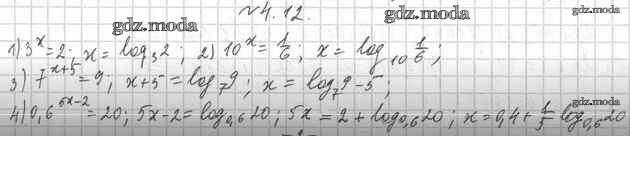 №4.12.
1) 3^x=2; x = log_3 2; 2) 10^x = 1/6; x = log_10 1/6;
3) 7^(x+5) = 9; x+5 = log_7 9; x = log_7 9 - 5;
4) 0,6^(5x-2) = 20; 5x-2 = log_0,6 20; 5x = 2 + log_0,6 20; x = 0,4 + 1/5 log_0,6 20
gdz.moda
gdz.moda
gdz.moda
gdz.moda
gdz.moda
gdz.moda